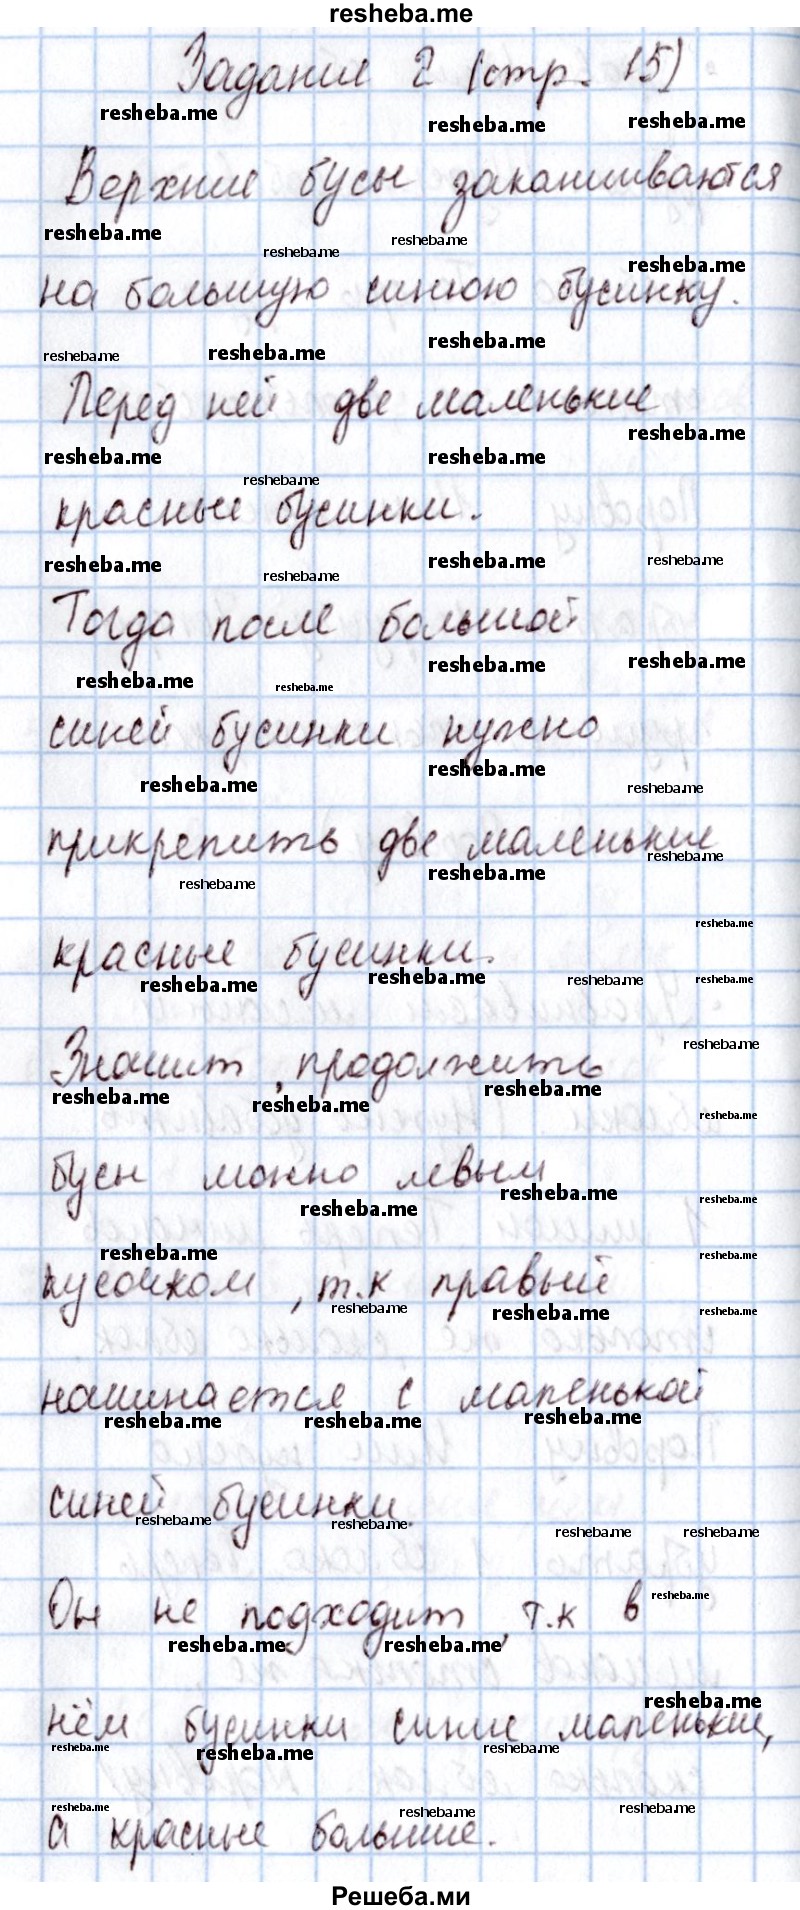 resheba.me
Задание 2 (стр. 15)
Верхние бусы заканчиваются
на большую синюю бусинку.
Перед ней две маленькие
красные бусинки.
Тогда после большой
синей бусинки нужно
прикрепить две маленькие
красные бусинки.
Значит, продолжить
бусы можно левым
кусочком, т.к правый
начинается с маленькой
синей бусинки.
Он не подходит, т.к в
нём бусинки синие маленькие,
а красные большие.
Решеба.ми